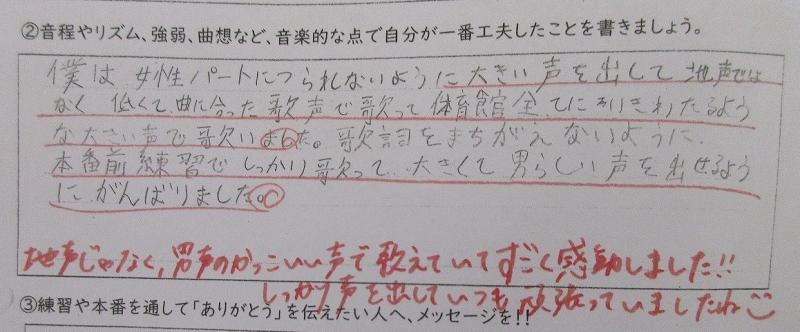 ②音程やリズム、強弱、曲想など、音楽的な点で自分が一番工夫したことを書きましょう。
僕は女性パートにつられないように大きい声を出して地声では
なく低くて曲に合った歌声で歌って体育館全てにひびきわたるよう
な大きい声で歌いました。歌詞をまちがえないように、
本番前練習でしっかり歌って、大きくて男らしい声を出せるよう
にがんばりました。
地声じゃなく、男声のかっこいい声で歌えていてすごく感動しました!!
しっかり声を出していつも頑張っていましたね
③練習や本番を通して「ありがとう」を伝えたい人へ、メッセージを!!